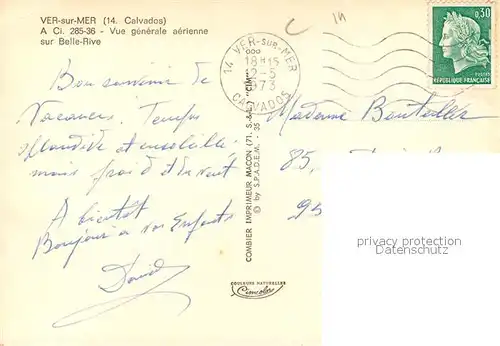 VER-sur-MER (14. Calvados)
A Ci. 285-36 - Vue générale aérienne
sur Belle-Rive
0,30
14 VER-sur-MER
18H15
12-5
1973
CALVADOS
Bon souvenir de
Vacances. Temps
splendide et ensoleillé
mais froid et du vent
A bientôt
Bonjour à vos Enfants
David
Madame
85,
95
COMBIER IMPRIMEUR MACON (71. S.-&-L.) "CIM"
© by S.P.A.D.E.M. - 35
COULEURS NATURELLES
Cimcolor
privacy protection
Datenschutz